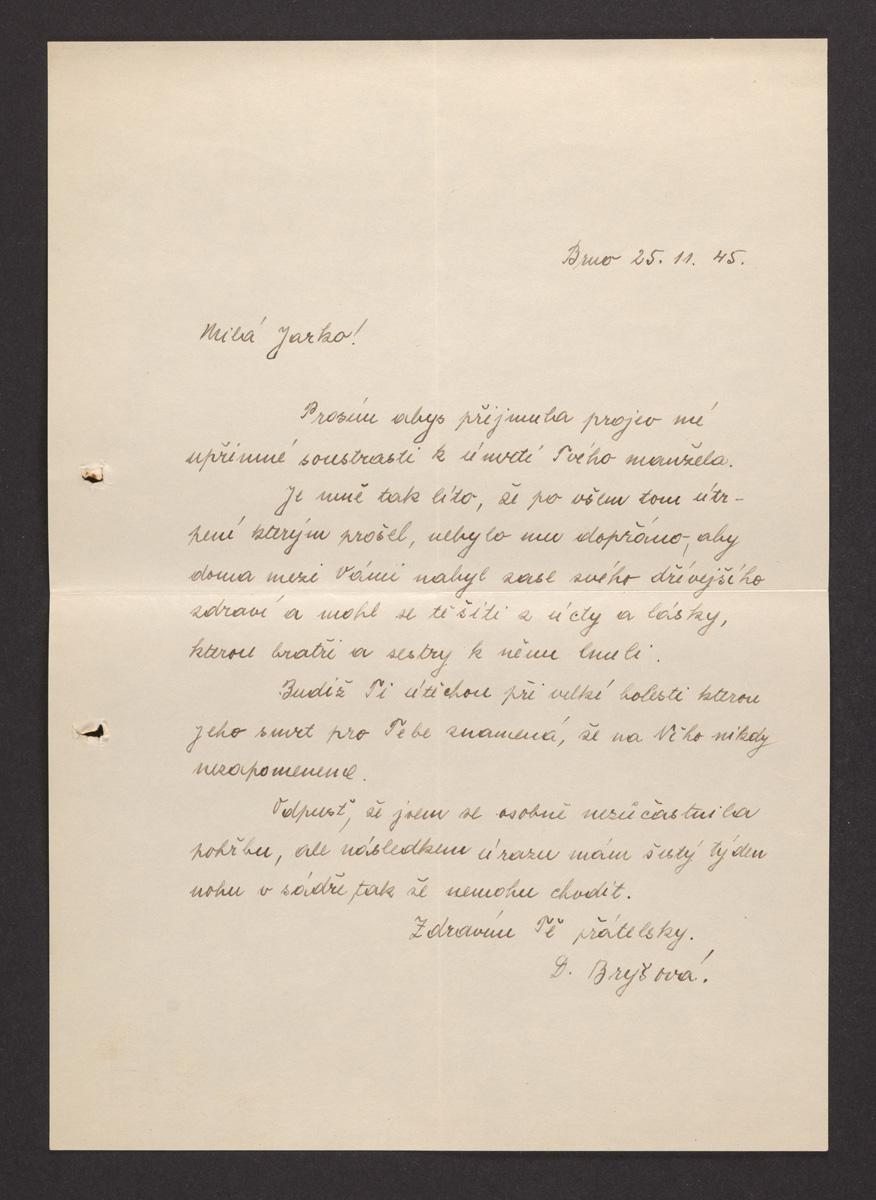 Brno 25. 11. 45.
Milá Jarko!
Prosím abys přijmula projev mé
upřímné soustrasti k úmrtí Tvého manžela.
Je mně tak líto, že po všem tom útr-
pení kterým prošel, nebylo mu dopřáno, aby
doma mezi Vámi nabyl zase svého dřívejšího
zdraví a mohl se těšiti z úcty a lásky,
kterou bratři a sestry k němu lnuli.
Budiž Ti útěchou při velké bolesti kterou
jeho smrt pro Tebe znamená, že na Něho nikdy
nezapomeneme.
Odpusť, že jsem se osobně nezůčastnila
pohřbu, ale následkem úrazu mám šestý týden
nohu v sádře, tak že nemohu chodit.
Zdravím Tě přátelsky.
D. Bryšová.